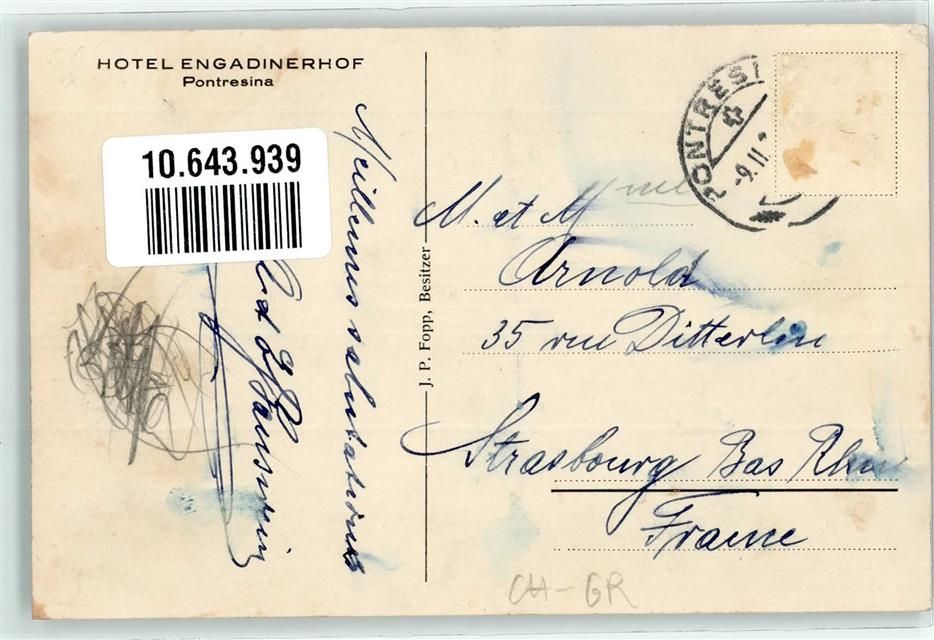 HOTEL ENGADINERHOF
Pontresina
10.643.939
Meilleures salutations
J. P. Fopp, Besitzer
PONTRESI
-9.II.
M. et Mme
Arnold
35 rue Ditterlin
Strasbourg Bas Rhin
France
CH-GR